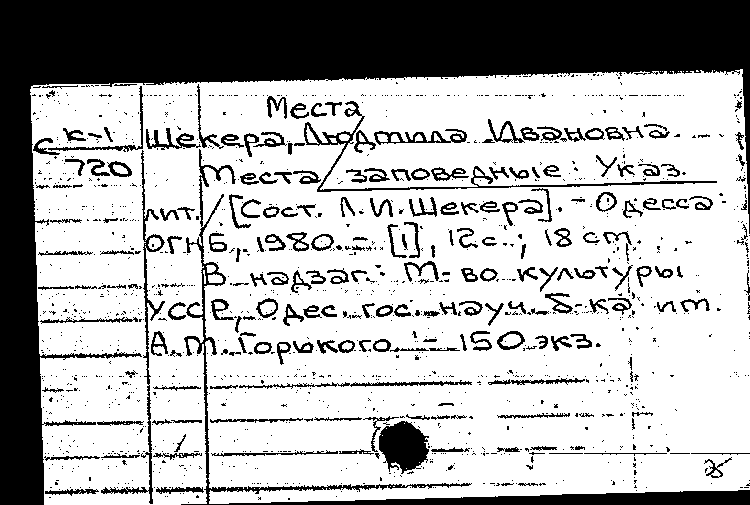 Места
С К-1 Шекера, Людмила Ивановна.
720 Места заповедные: Указ.
лит. / [Сост. Л.И.Шекера]. - Одесса:
ОГНБ, 1980. - [1], 12 с.; 18 см.
В надзаг.: М-во культуры
УССР, Одес. гос. науч. б-ка им.
А.М.Горького. - 150 экз.